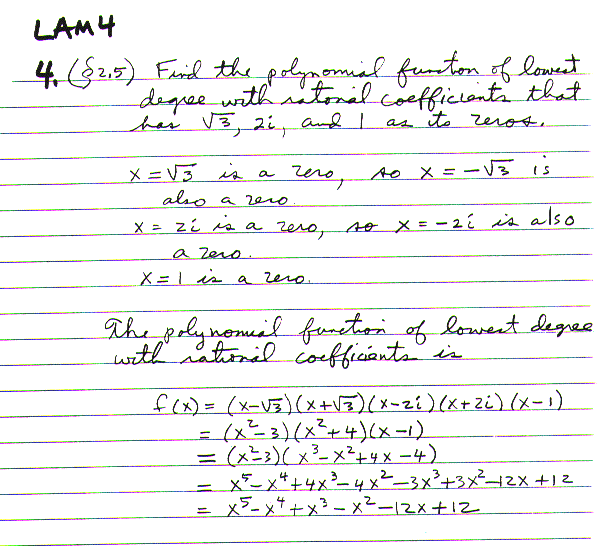 LAM4
4. (§2.5) Find the polynomial function of lowest
degree with rational coefficients that
has √3, 2i, and 1 as its zeros.
x = √3 is a zero, so x = -√3 is
also a zero.
x = 2i is a zero, so x = -2i is also
a zero.
x = 1 is a zero.
The polynomial function of lowest degree
with rational coefficients is
f(x) = (x-√3)(x+√3)(x-2i)(x+2i)(x-1)
= (x²-3)(x²+4)(x-1)
= (x²-3)(x³-x²+4x-4)
= x⁵-x⁴+4x³-4x²-3x³+3x²-12x+12
= x⁵-x⁴+x³-x²-12x+12